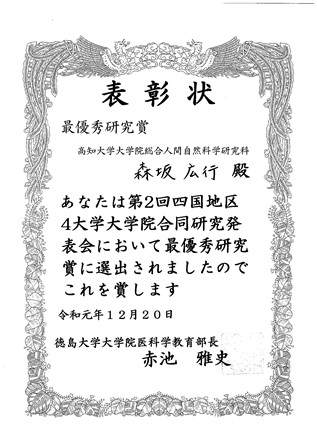 表彰状
最優秀研究賞
高知大学大学院総合人間自然科学研究科
森坂 広行 殿
あなたは第2回四国地区
4大学大学院合同研究発
表会において最優秀研究
賞に選出されましたので
これを賞します
令和元年12月20日
徳島大学大学院医科学教育部長
赤池 雅史